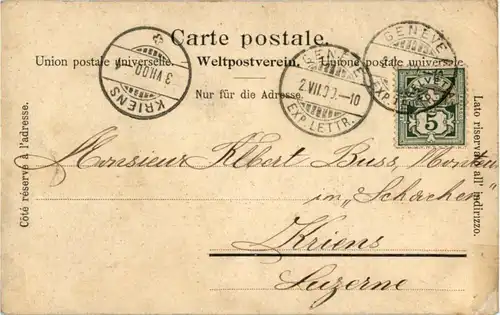 Carte postale.
Union postale universelle. Weltpostverein. Unione postale universale.
Nur für die Adresse.
KRIENS
3 VII 00
GENÈVE
2.VII.00.-10
EXP. LETTR.
GENÈVE
EXP. LETTR.
5
Côté réservé à l'adresse.
Lato riservato all' indirizzo.
Monsieur Albert Buss,
im „Schachen"
Kriens
Luzerne